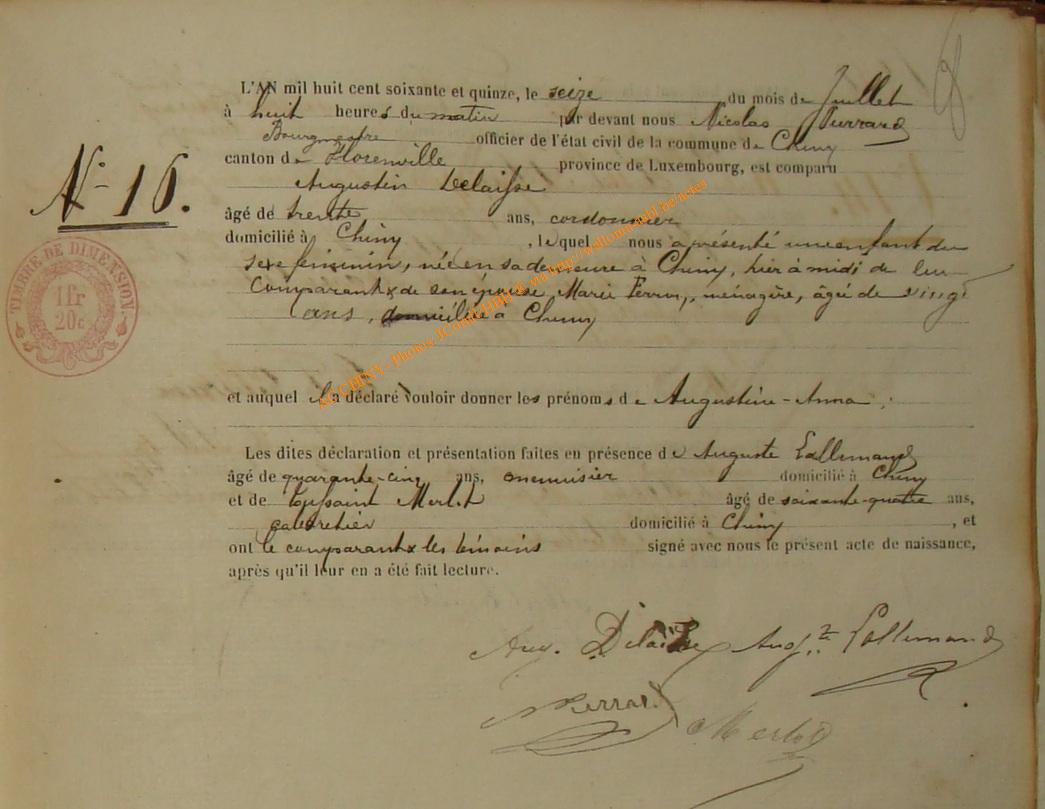 L'AN mil huit cent soixante et quinze, le seize du mois de Juillet
à huit heures du matin par devant nous Nicolas Perrard
Bourgmestre officier de l'état civil de la commune de Chiny
canton de Florenville province de Luxembourg, est comparu
Augustin Delaisse
N° 16.
âgé de trente ans, cordonnier
domicilié à Chiny, lequel nous a présenté un enfant du
sexe féminin, née en sa demeure à Chiny, hier à midi de lui
comparant & de son épouse, Marie, ménagère, âgé de vingt
ans, domiciliée à Chiny
TIMBRE DE DIMENSION.
1 fr
20 c
et auquel il a déclaré vouloir donner les prénoms de Augustine-Anna,
Les dites déclaration et présentation faites en présence de Auguste Lallemand
âgé de quarante-cinq ans, menuisier domicilié à Chiny
et de Toussaint Merlot âgé de soixante-quatre ans,
domicilié à Chiny, et
ont le comparant & les témoins signé avec nous le présent acte de naissance,
après qu'il leur en a été fait lecture.
Aug. Delaisse Aug.te Lallemand
Perrard Merlot